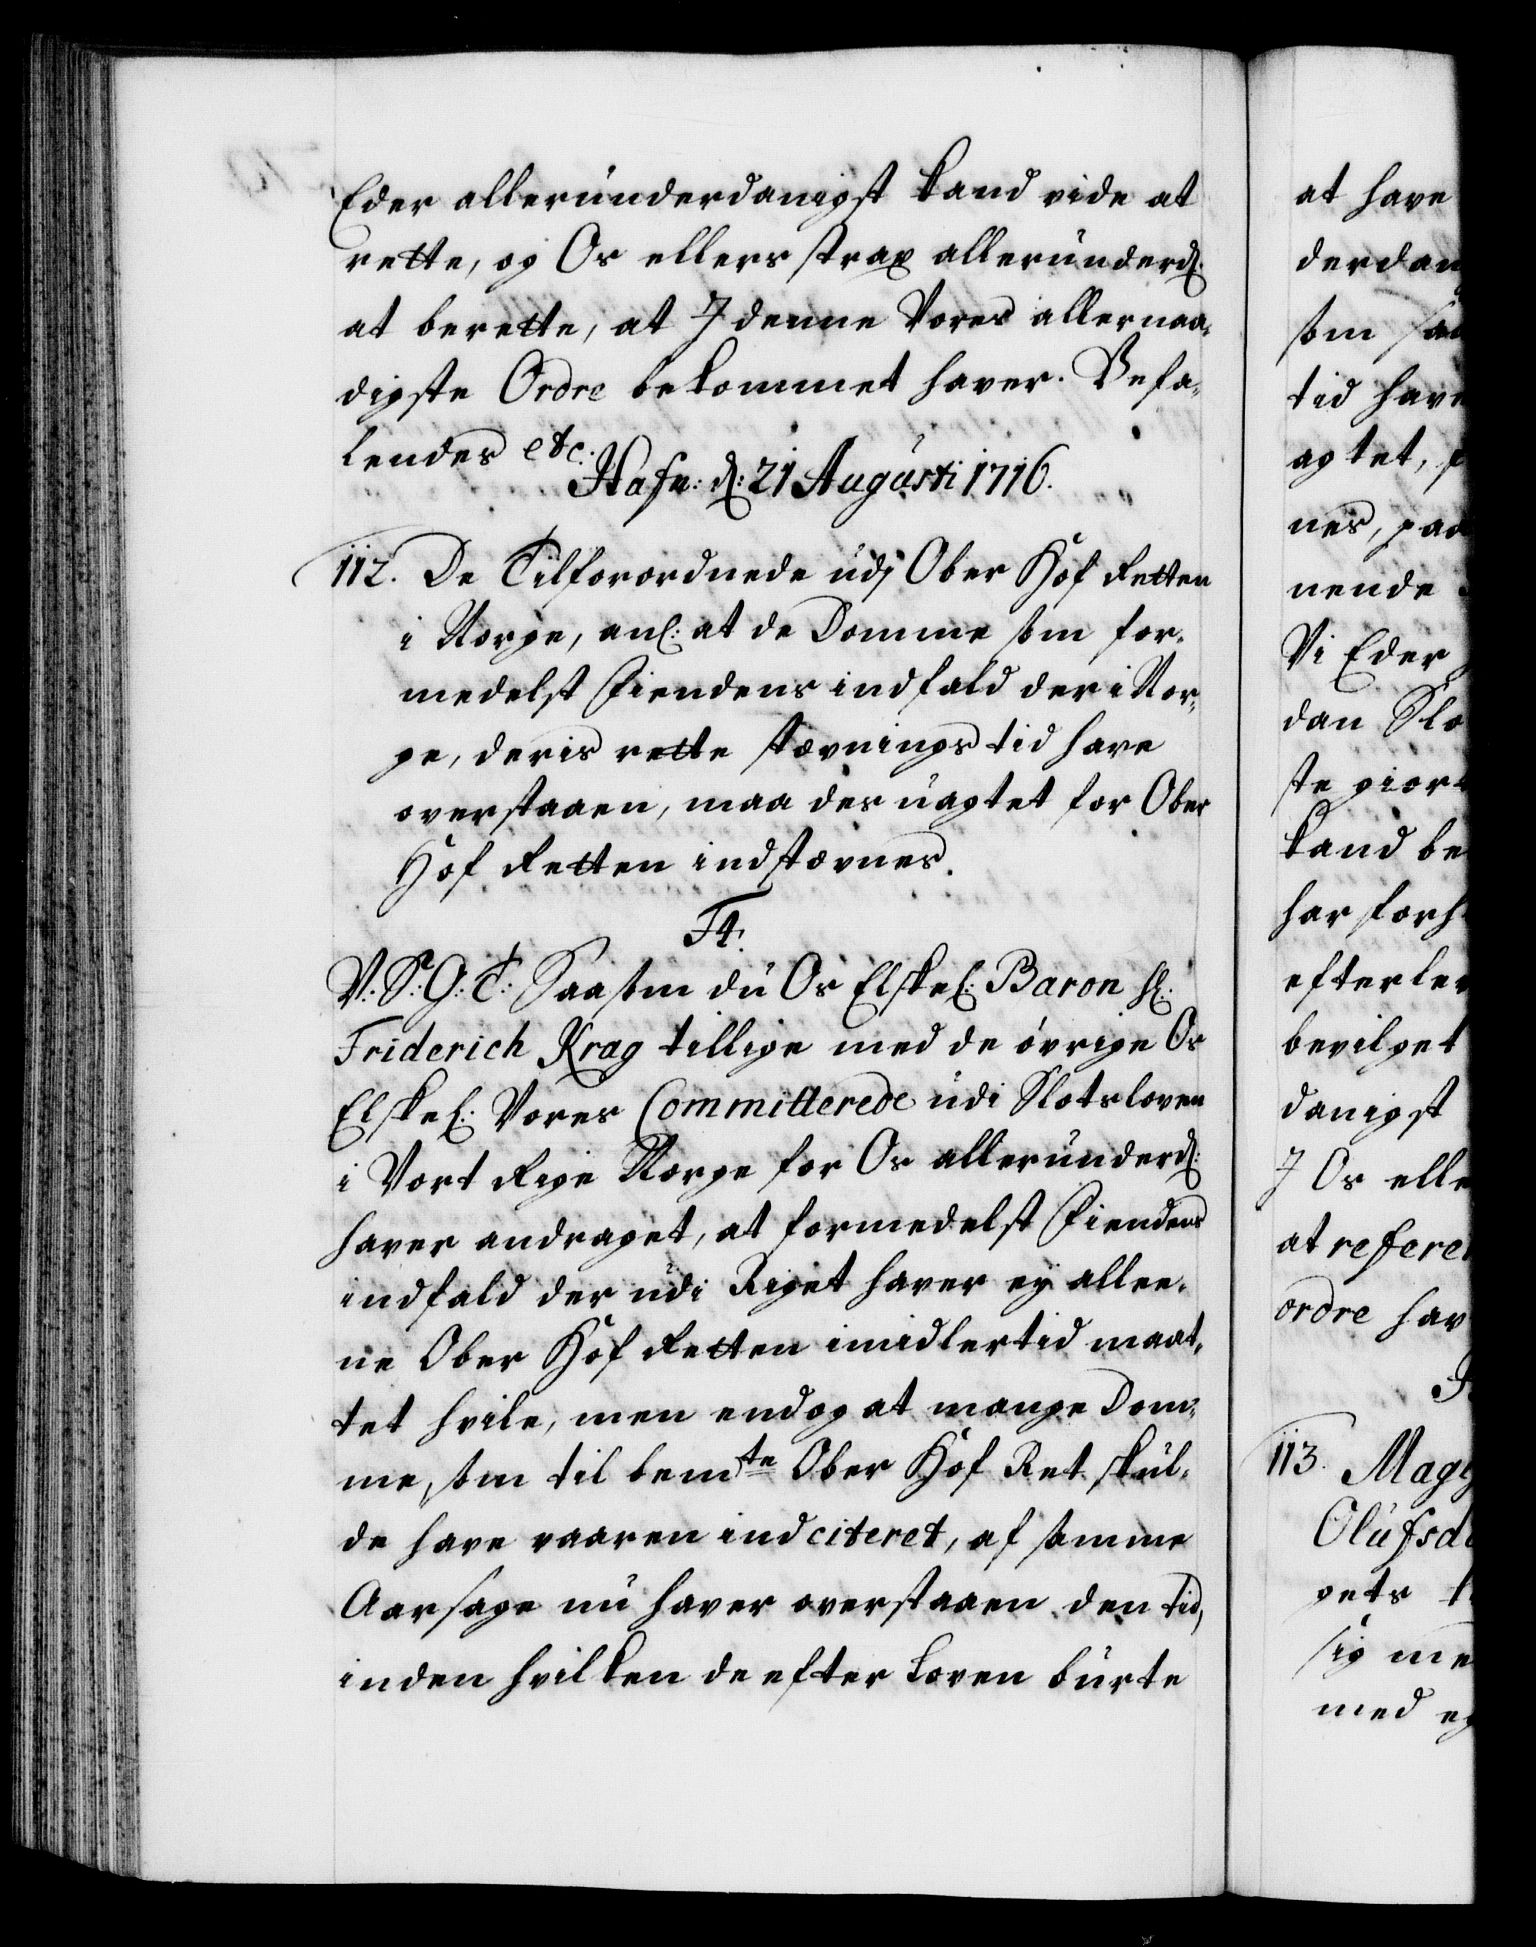 Eder allerunderdanigst kand vide at
rette, og Os ellers strax allerunderd:
at berette, at I denne Vores allernaa-
digste Ordre bekommet haver. Befa-
lendes etc:
Hafn: d: 21 Augusti 1716.
112. De Tilforordnede udj Ober Hof Retten
i Norge, anl: at de Domme som for-
medelst Fiendens indfald der i Nor-
ge, deris rette stevnings tid have
overstaaen, maa des uagtet for Ober
Hof Retten indstevnes.
F4.
V: S: G: T: Saasom du Os Elskel: Baron H:
Friderich Krag tillige med de øvrige Os
Elskel: Vores Committerede udi Slotsloven
i Vort Rige Norge for Os allerunderd:
haver andraget, at formedelst Fiendens
indfald der udi Riget haver ey allee-
ne Ober Hof Retten imidlertid maat-
tet hvile, men endog at mange Dom-
me, som til bemte Ober Hof Ret skul-
de have vaaren indciteret, af samme
Aarsage nu haver overstaaen den tid,
inden hvilken de efter Loven burte
at have
derdan
som
tid have
agtet,
nes, paa
nende
Vi Eder
dan Slo
ste giort
kand be
har forh
efterlev
bevilget
danigst
I Os elle
at refere
ordre hav
113. Mag
Olufsd
gets
sig me
med